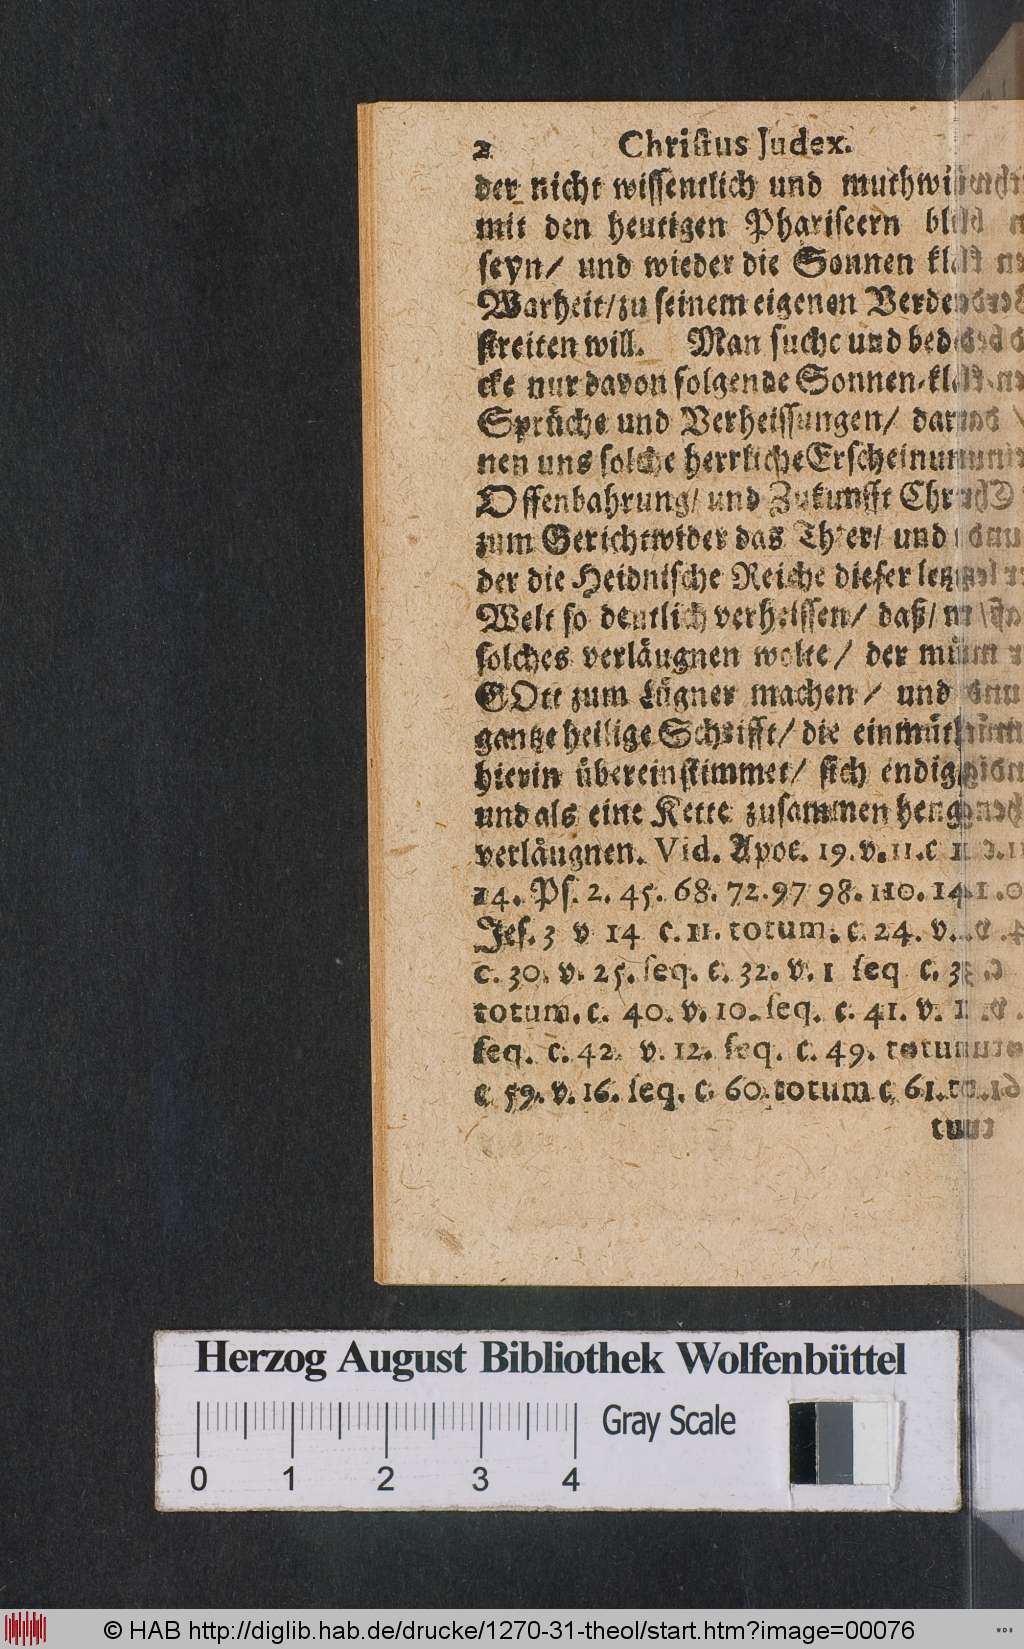 2 Christus Judex.
der nicht wissentlich und muthwi
mit den heutigen Phariseern bli
seyn/ und wieder die Sonnen kla
Warheit/ zu seinem eigenen Verde
streiten will. Man suche und bed
cke nur davon folgende Sonnen-kla
Sprüche und Verheissungen/ dar
nen uns solche herrliche Erscheinun
Offenbahrung/ und Zukunfft Chr
zum Gericht wider das Thier/ und
der die Heidnische Reiche dieser letz
Welt so deutlich verheissen/ daß/
solches verläugnen wolte/ der mü
GOtt zum Lügner machen/ und
gantze heilige Schrifft/ die einmüt
hierin übereinstimmet/ sich endig
und als eine Kette zusammen heng
verläugnen. Vid. Apoc. 19. v. 11. c
14. Ps. 2. 45. 68. 72. 97 98. 110. 14
Jes. 3 v 14 c. 11. totum. c. 24. v.
c. 30. v. 25. seq. c. 32. v. 1 seq c.
totum. c. 40. v. 10. seq. c. 41. v. 1
seq. c. 42 v. 12. seq. c. 49. totum
c 59. v. 16. seq. c. 60. totum c 61.
tum
Herzog August Bibliothek Wolfenbüttel
Gray Scale
0 1 2 3 4
© HAB http://diglib.hab.de/drucke/1270-31-theol/start.htm?image=00076